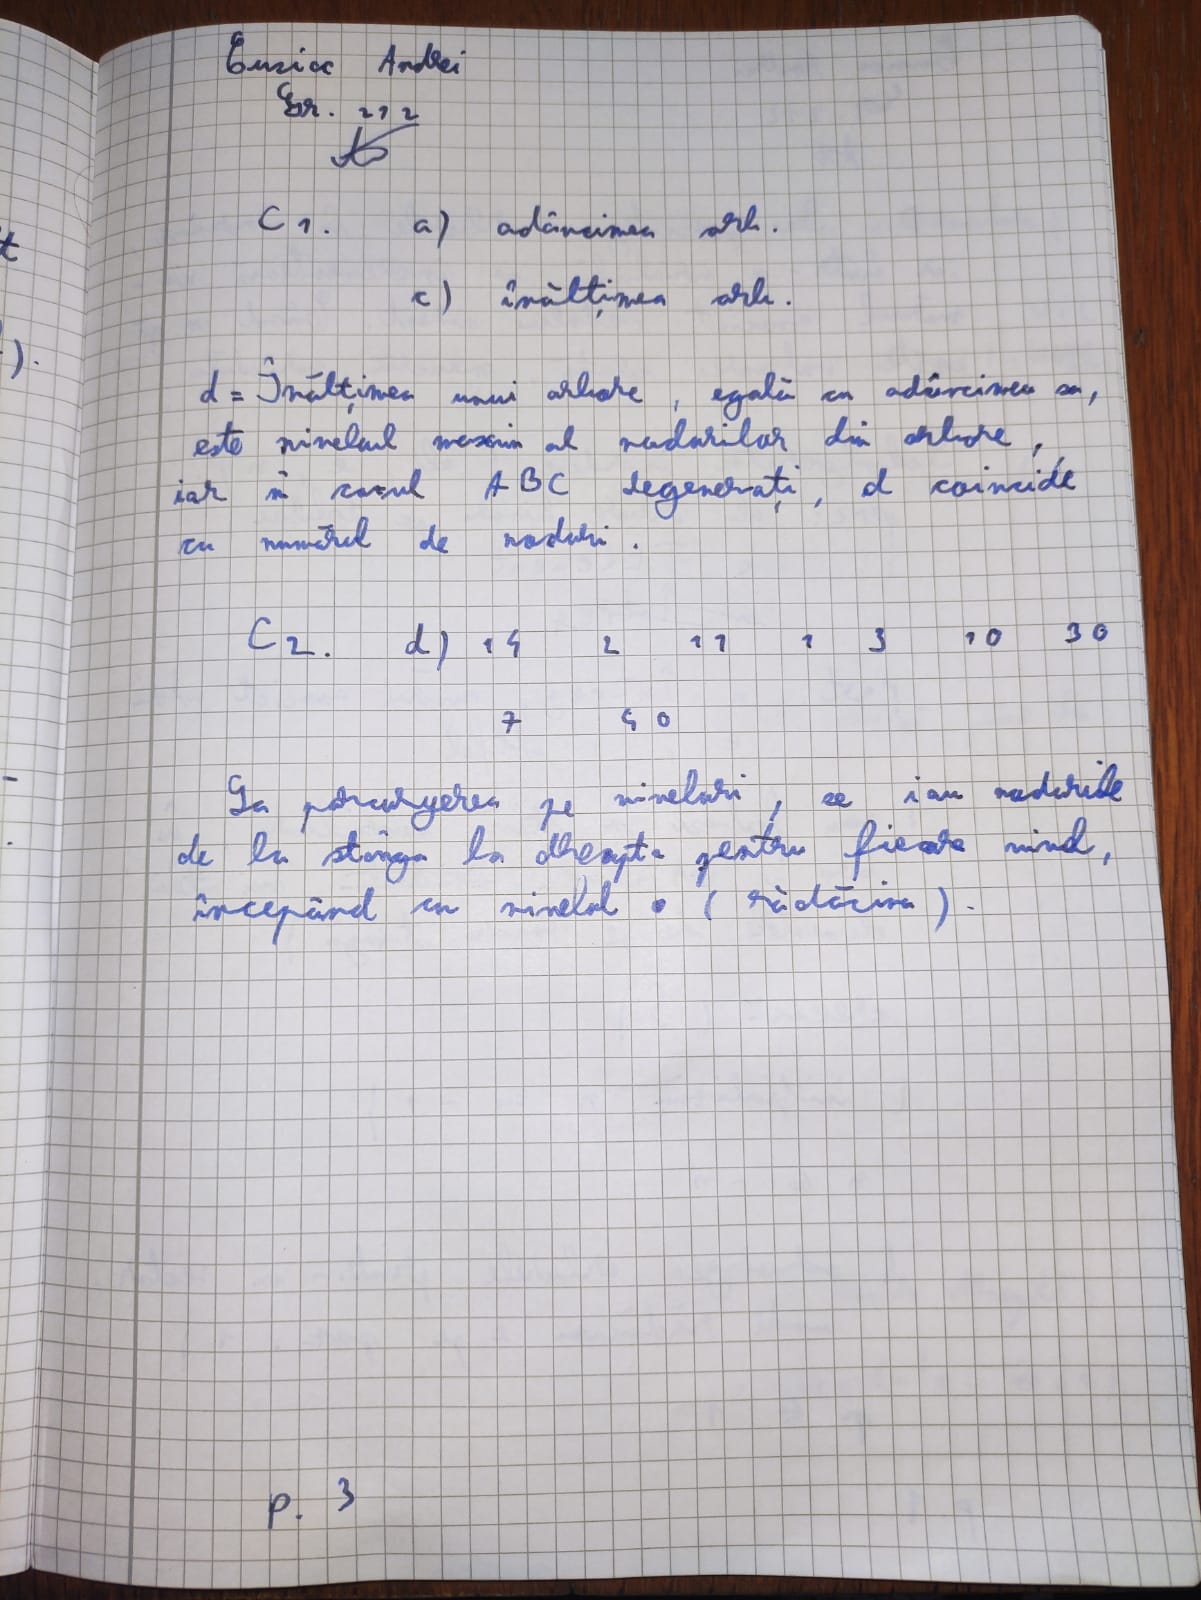 Andrei
Gr. 212
C1. a) adâncimea arb.
c) înălțimea arb.
d = Înălțimea unui arbore, egală cu adâncimea sa,
este nivelul maxim al nodurilor din arbore,
iar în cazul ABC degenerați, d coincide
cu numărul de noduri.
C2. d) 14 2 11 1 3 10 30
7 40
La parcurgerea pe niveluri, se iau nodurile
de la stânga la dreapta pentru fiecare nivel,
începând cu nivelul 0 (rădăcina).
p. 3